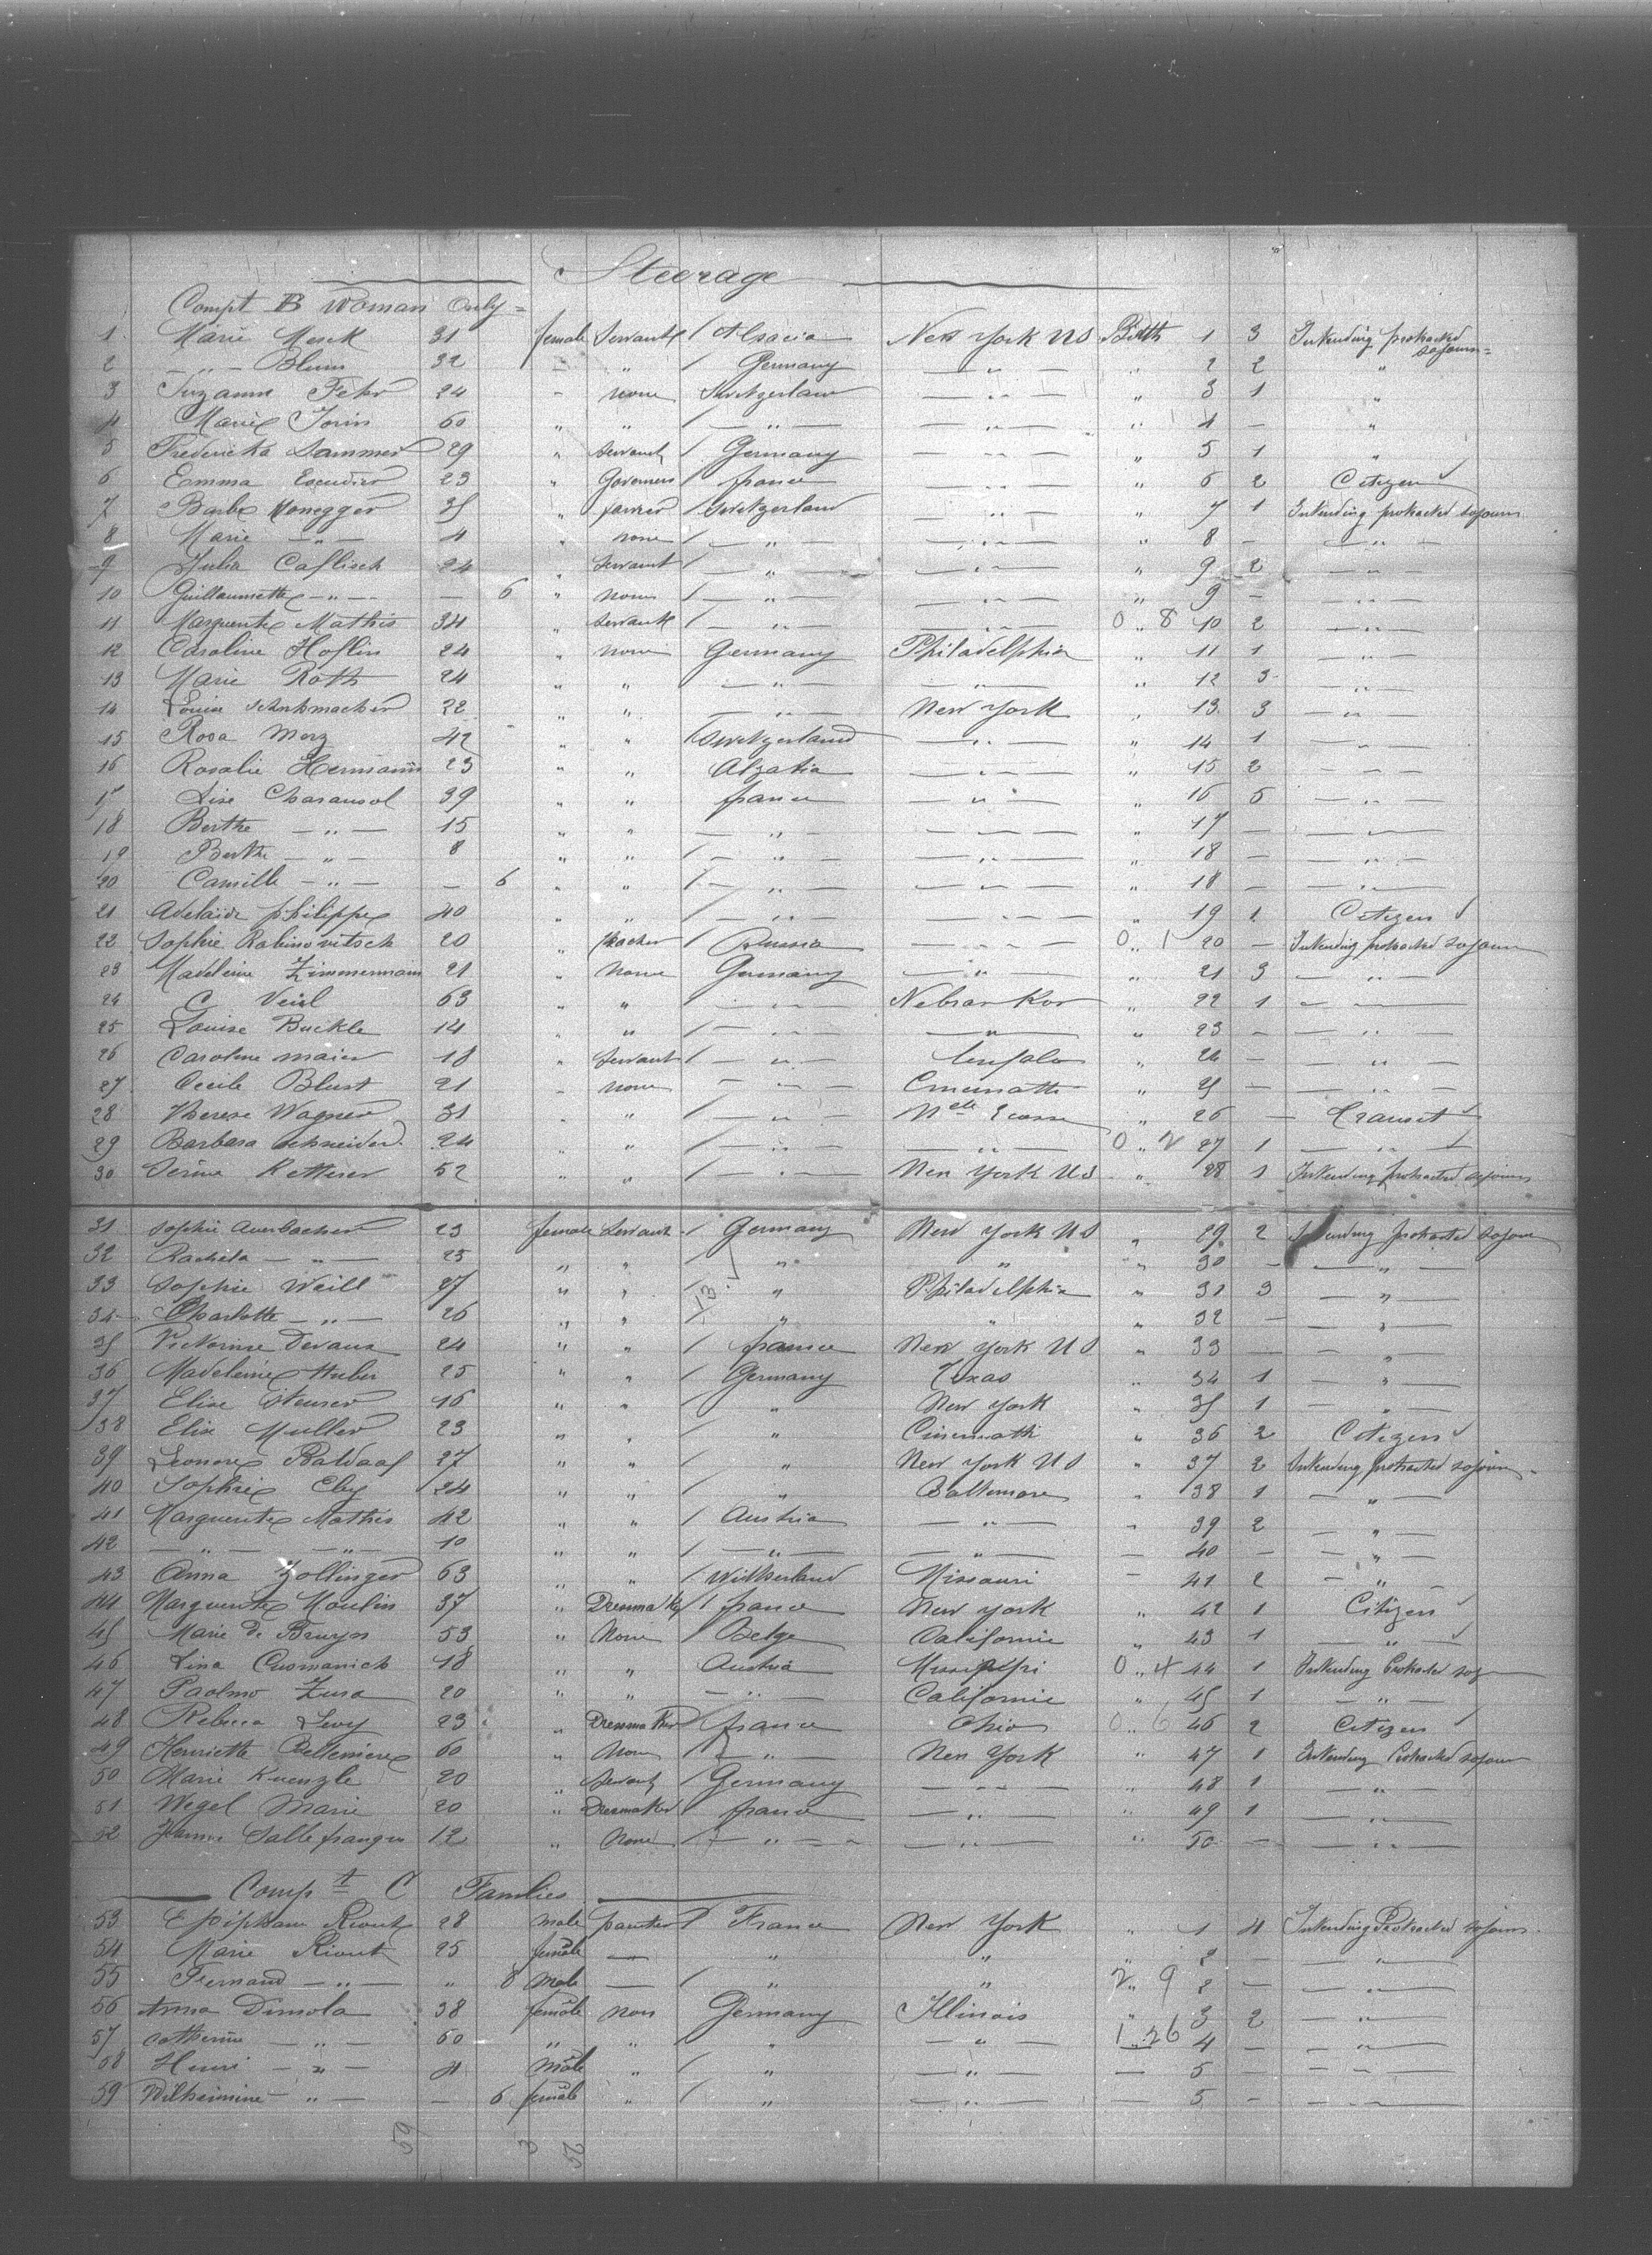 Steerage
Compt B Woman Only =
1 Marie Merk 31 female Servant / Alsacia New York US Birth 1 3 Intending protracted sojourn =
2 — " — Blum 32 - " / Germany — " — " 2 2 "
3 Suzanne Fehr 24 - none Switzerland — " — " 3 1 "
4 Marie Jorin 60 " " / — " — — " — " 4 — "
5 Frederika Sammer 29 " servant / Germany — " — " 5 1 "
6 Emma Escudier 23 " Governess / france — " — " 6 2 Citizen
7 Barbe Honegger 35 " / Switzerland — " — " 7 1 Intending protracted sojourn
8 Marie — " — 4 " none / — " — — " — " 8 — — " —
9 Julia Caflisch 24 " Servant / — " — — " — " 9 2 — " —
10 Guillaumette — " — — 6 " none / — " — — " — " 9 — — " —
11 Marguerite Mathis 34 " servant / — " — — " — 0 " 8 10 2 — " —
12 Caroline Hoflin 24 " none Germany Philadelphia " 11 1 — " —
13 Marie Roth 24 " " — " — — " — " 12 3 — " —
14 Louise Schuhmacher 22 " " — " — New York " 13 3 — " —
15 Rosa Merz 42 " " / Switzerland — " — " 14 1 — " —
16 Rosalie Hermann 23 " " Alzatia — " — " 15 2 — " —
17 Lise Charansol 39 " " france — " — " 16 5 — " —
18 Berthe — " — 15 " " — " — — " — " 17 — — " —
19 Berthe — " — 8 " " / — " — — " — " 18 — — " —
20 Camille — " — — 6 " " / — " — — " — " 18 — — " —
21 Adelaide philippe 40 " " / — " — — " — " 19 1 Citizen
22 Sophie Rabinovitsch 20 " teacher / Russia — " — 0 " 1 20 — Intending protracted sojourn
23 Madeleine Zimmermann 21 " None Germany — " — " 21 3 — " —
24 C Veiil 63 " " / — " — " 22 1 — " —
25 Louise Buckle 14 " " / — " — — " — " 23 — — " —
26 Caroline maier 18 " Servant / — " — " 24 — — " —
27 Cecile Blust 21 - none — " — Cincinatti " 25 — — " —
28 Therese Wagner 31 " / — " — " 26 — Transit
29 Barbara schneider 24 " " / — " — — " — 0 " 2 27 1 — " —
30 Ketterer 52 " " / — " — New York US " 28 1 Intending protracted sojourn
31 Sophie Auerbacher 23 female Servant / Germany New York US " 29 2 Intending protracted sojourn
32 Rachela — " — 25 " " / " " " 30 — — " —
33 Sophie Weill 27 " " / " Philadelphia " 31 3 — " —
34 Charlotte — " — 26 " " " " " 32 — — " —
35 Victorine Devaux 24 " " / france New York US " 33 — — " —
36 Madeleine Huber 25 " " / Germany Texas " 34 1 — " —
37 Elise 16 " " / " New York " 35 1 — " —
38 Elise Muller 23 " " / " Cincinnatti " 36 2 Citizen
39 Leonore Baldaaf 27 " " / " New York US " 37 2 Intending protracted sojourn
40 Sophie Eby 24 " " / " Baltimore " 38 1 — " —
41 Marguerite Mathis 42 " " / Austria — " — " 39 2 — " —
42 — " — — " — 10 " " / — " — — " — — 40 — — " —
43 Anna Zollinger 63 " " / Witherland Missouri — 41 2 — " —
44 Marguerite Moulin 37 " Dressmaker / france New York " 42 1 Citizen
45 Marie de Bruyn 53 " None / Belge Californie " 43 1 — " —
46 Lina Cusmanich 18 " " Austria Missipipi 0 " 4 44 1 Intending Protracted soj
47 Paolmo Zusa 20 " " — " — Californie " 45 1 — " —
48 Rebecca Levy 23 " Dressmaker / france Ohio 0 " 6 46 2 Citizen
49 Henriette Bellemiere 60 " None / — " — New York " 47 1 Intending Protracted sojourn
50 Marie Kuenzle 20 " servant / Germany — " — " 48 1 — " —
51 Wegel Marie 20 " Dressmaker / france — " — " 49 1 — " —
52 Jeanne Sallefranque 12 " None / — " — — " — " 50 — — " —
Compt C Families
53 Epiphane Riout 28 male painter / France New York " 1 4 Intending Protracted sojourn
54 Marie Riout 25 female — " " " 2 — — " —
55 Fernand — " — " 8 Male — / " " 2 " 9 2 — — " —
56 Anna Dimola 38 female non Germany Illinois " 3 2 — " —
57 Catherine — " — 60 " " " — " — 1 26 4 — — " —
58 Henri — " — 4 Male " / " — " — — 5 — — " —
59 Wilhelmine — " — — 6 female " / " — " — — 5 — — " —